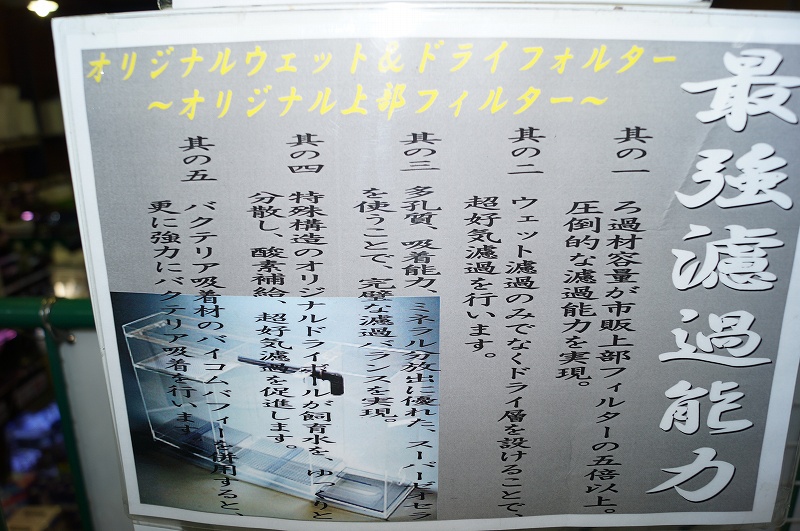 最強濾過能力
オリジナルウェット＆ドライフォルター
～オリジナル上部フィルター～
其の一
ろ過材容量が市販上部フィルターの五倍以上。
圧倒的な濾過能力を実現。
其の二
ウェット濾過のみでなくドライ層を設けることで、
超好気濾過を行います。
其の三
多孔質、吸着能力、ミネラル分放出に優れた、スーパーゼオセラ
を使うことで、完璧な濾過バランスを実現。
其の四
特殊構造のオリジナルドライボールが飼育水を、ゆっくりと
分散し、酸素補給、超好気濾過を促進します。
其の五
バクテリア吸着材のバイコムバフィーを併用すると、
更に強力にバクテリア吸着を行います。